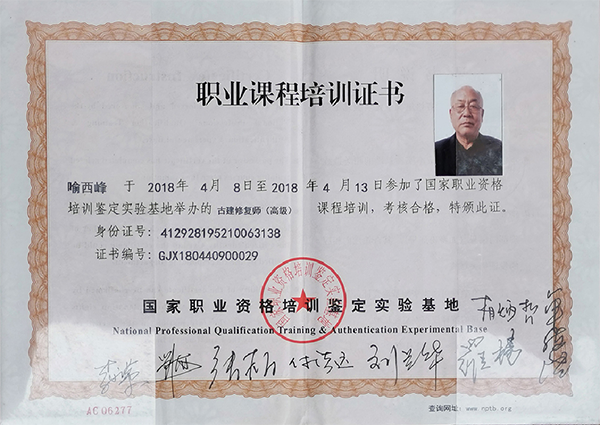 职业课程培训证书
喻西峰 于 2018年 4月 8日至2018年 4月 13日参加了国家职业资格
培训鉴定实验基地举办的 古建修复师（高级） 课程培训，考核合格，特颁此证。
身份证号：412928195210063138
证书编号：GJX180440900029
国家职业资格培训鉴定实验基地
National Professional Qualification Training & Authentication Experimental Base
刘兰华
AC06277
查询网址：www.nptb.org